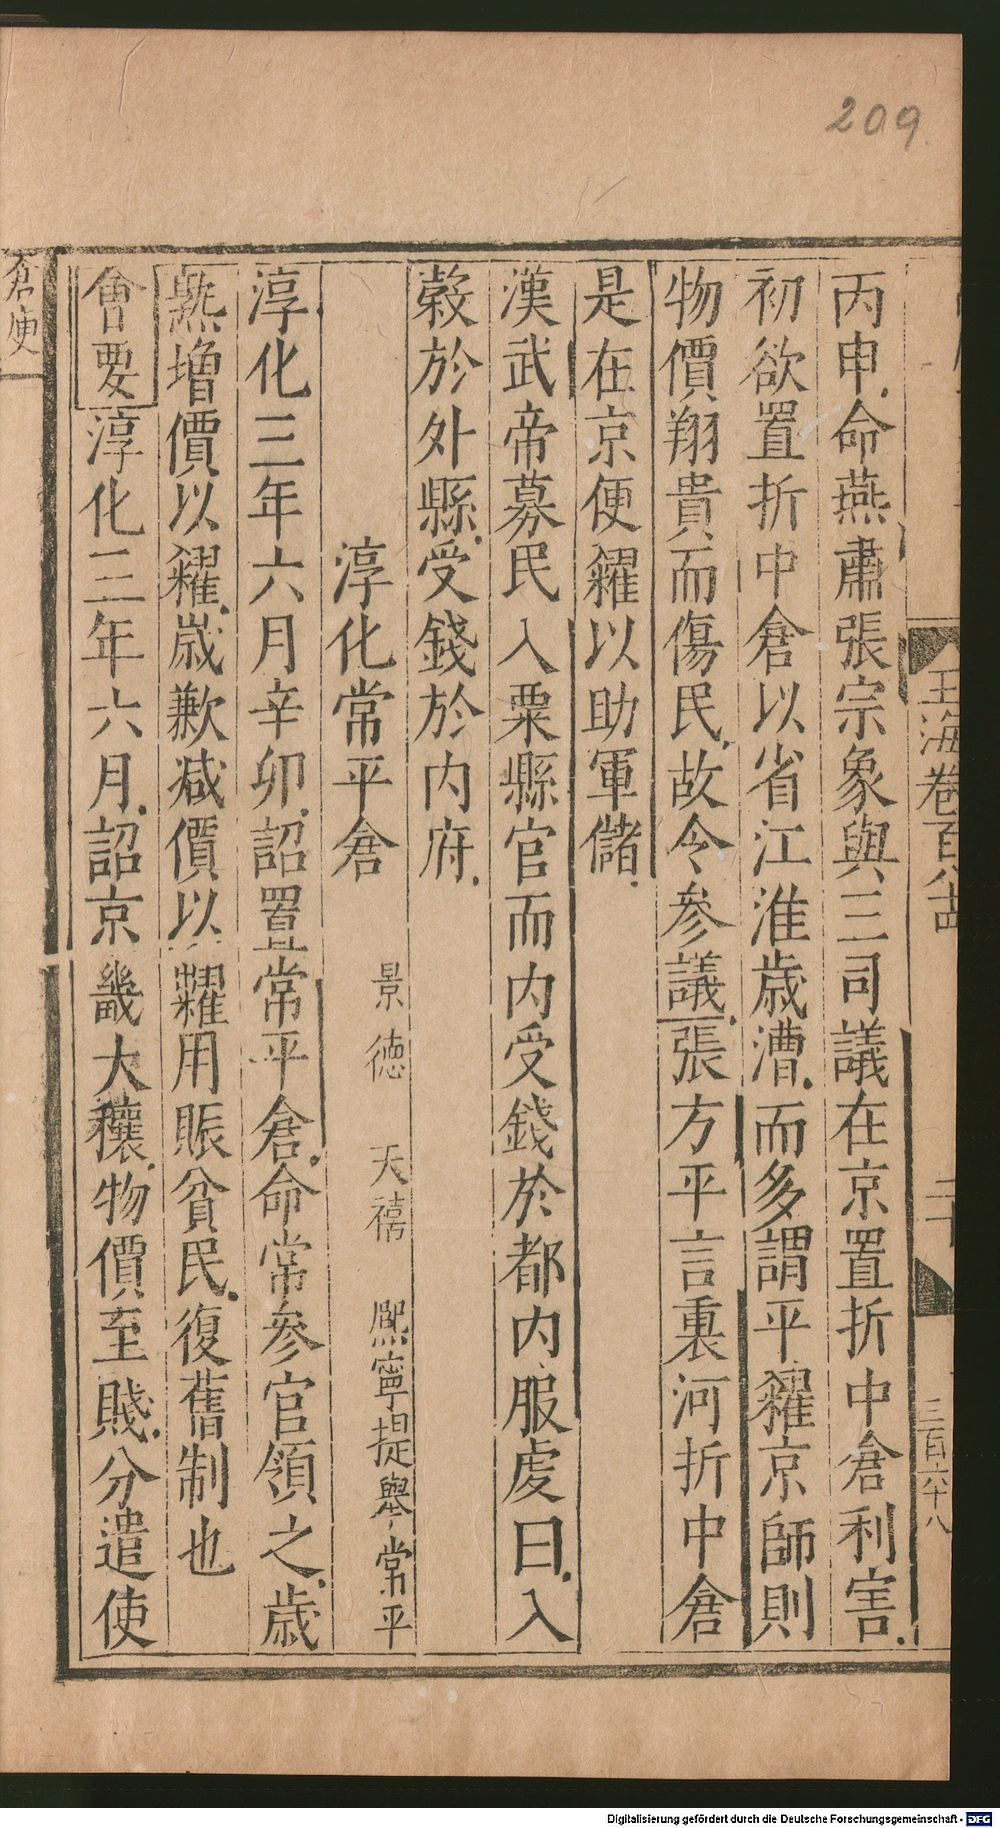 209
玉海卷百八十四
二十
三百六十八
丙申命燕肅張宗象與三司議在京置折中倉利害
初欲置折中倉以省江淮歲漕而多謂平糴京師則
物價翔貴而傷民故令參議張方平言裏河折中倉
是在京便糴以助軍儲
漢武帝募民入粟縣官而內受錢於都內服虔曰入
榖於外縣受錢於內府
淳化常平倉 景德 天禧 熈寧提舉常平
淳化三年六月辛卯詔置常平倉命常參官領之歲
熟增價以糴歲歉减價以糶用賑貧民復舊制也
會要淳化三年六月詔京畿大穰物價至賤分遣使
倉庾
Digitalisierung gefördert durch die Deutsche Forschungsgemeinschaft - DFG